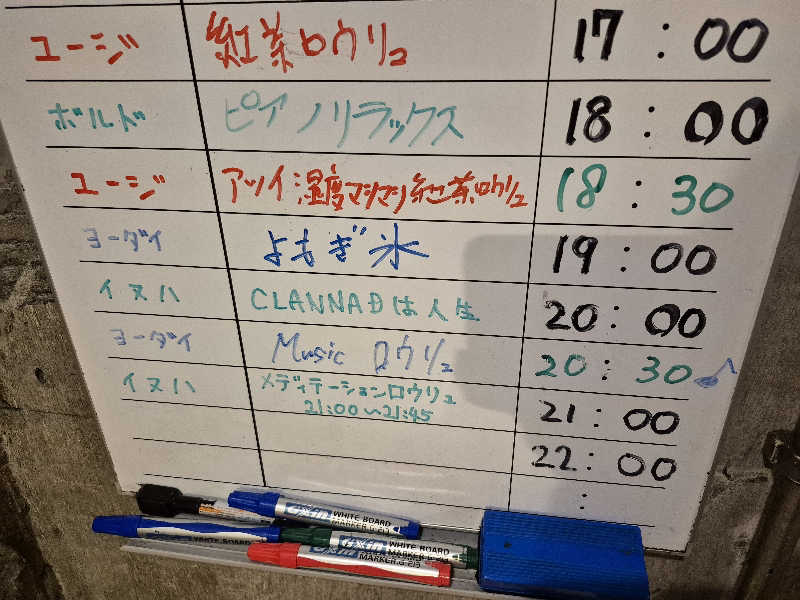 ユージ 紅茶ロウリュ 17:00
ボルド ピアノリラックス 18:00
ユージ アツイ湿度マシマシ紅茶ロウリュ 18:30
ヨーダイ よもぎ氷 19:00
イヌハ CLANNADは人生 20:00
ヨーダイ Music ロウリュ 20:30♪
イヌハ メディテーションロウリュ 21:00
21:00~21:45
22:00
:
WHITE BOARD
MARKER
WHITE BOARD
WHITE BOARD
MARKER
WHITE BOARD
MARKER